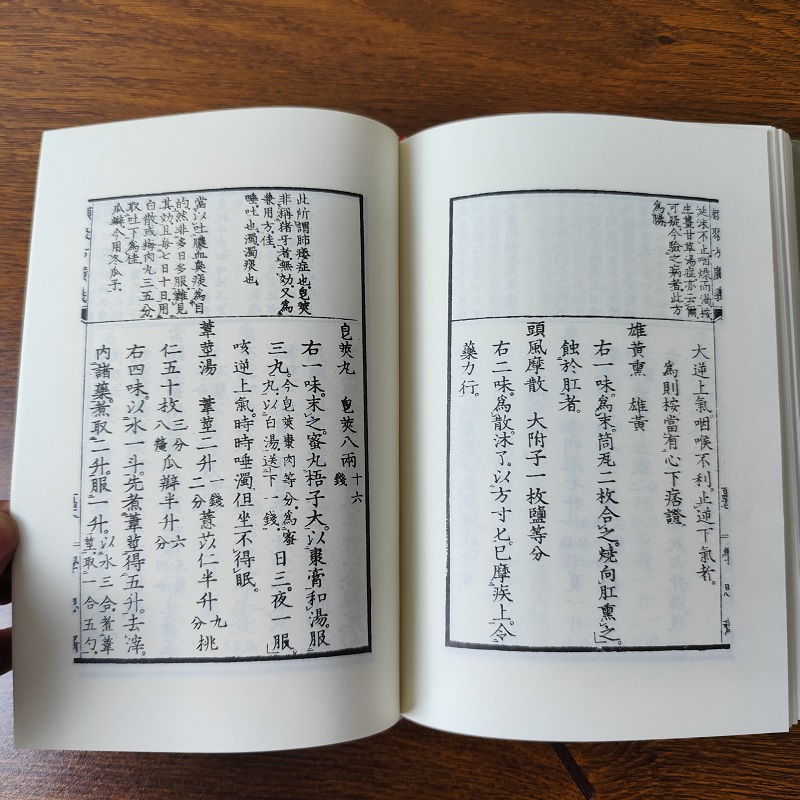 延沫不止咽燥而渴按
生薑甘草湯症亦云爾
可疑今驗之病者此方
為勝
大逆上氣咽喉不利止逆下氣者
為則按當有心下痞證
雄黃熏 雄黃
右一味為末筒瓦二枚合之燒向肛熏之
蝕於肛者
頭風摩散 大附子一枚鹽等分
右二味為散沫了以方寸匕已摩疾上令
藥力行
此所謂肺痿症也皂莢
非稱豬牙者無効又為
兼用方佳
唾吐也濁濁痰也
當以吐膿血臭痰為目
的然非多日多服難見
其効且每七日十日用
白散或梅肉丸三五分
取吐下為佳
瓜瓣今用冬瓜子
皂莢丸 皂莢八兩十六錢
右一味末之蜜丸梧子大以棗膏和湯服
三丸今皂莢棗肉等分為蜜丸以白湯送下一錢日三夜一服
咳逆上氣時時唾濁但坐不得眠
葦莖湯 葦莖二升一錢二分薏苡仁半升九分挑
仁五十枚三分八釐瓜瓣半升六分
右四味以水一斗先煮葦莖得五升去滓
內諸藥煮取二升服一升以水三合煮葦莖取一合五勺